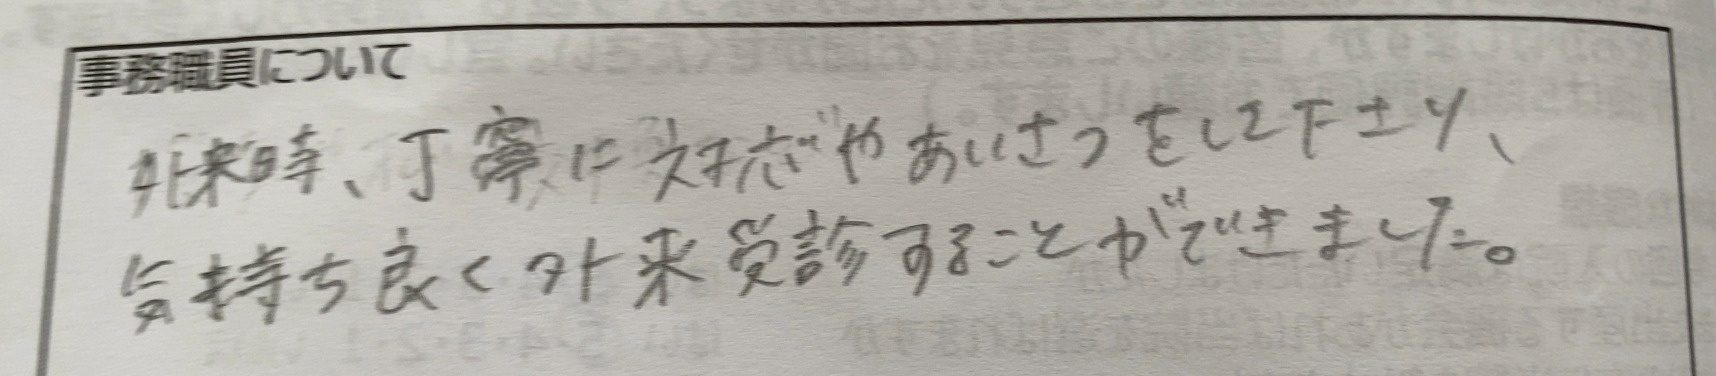 事務職員について
外来時、丁寧に対応やあいさつをして下さり、
気持ち良く外来受診することができました。